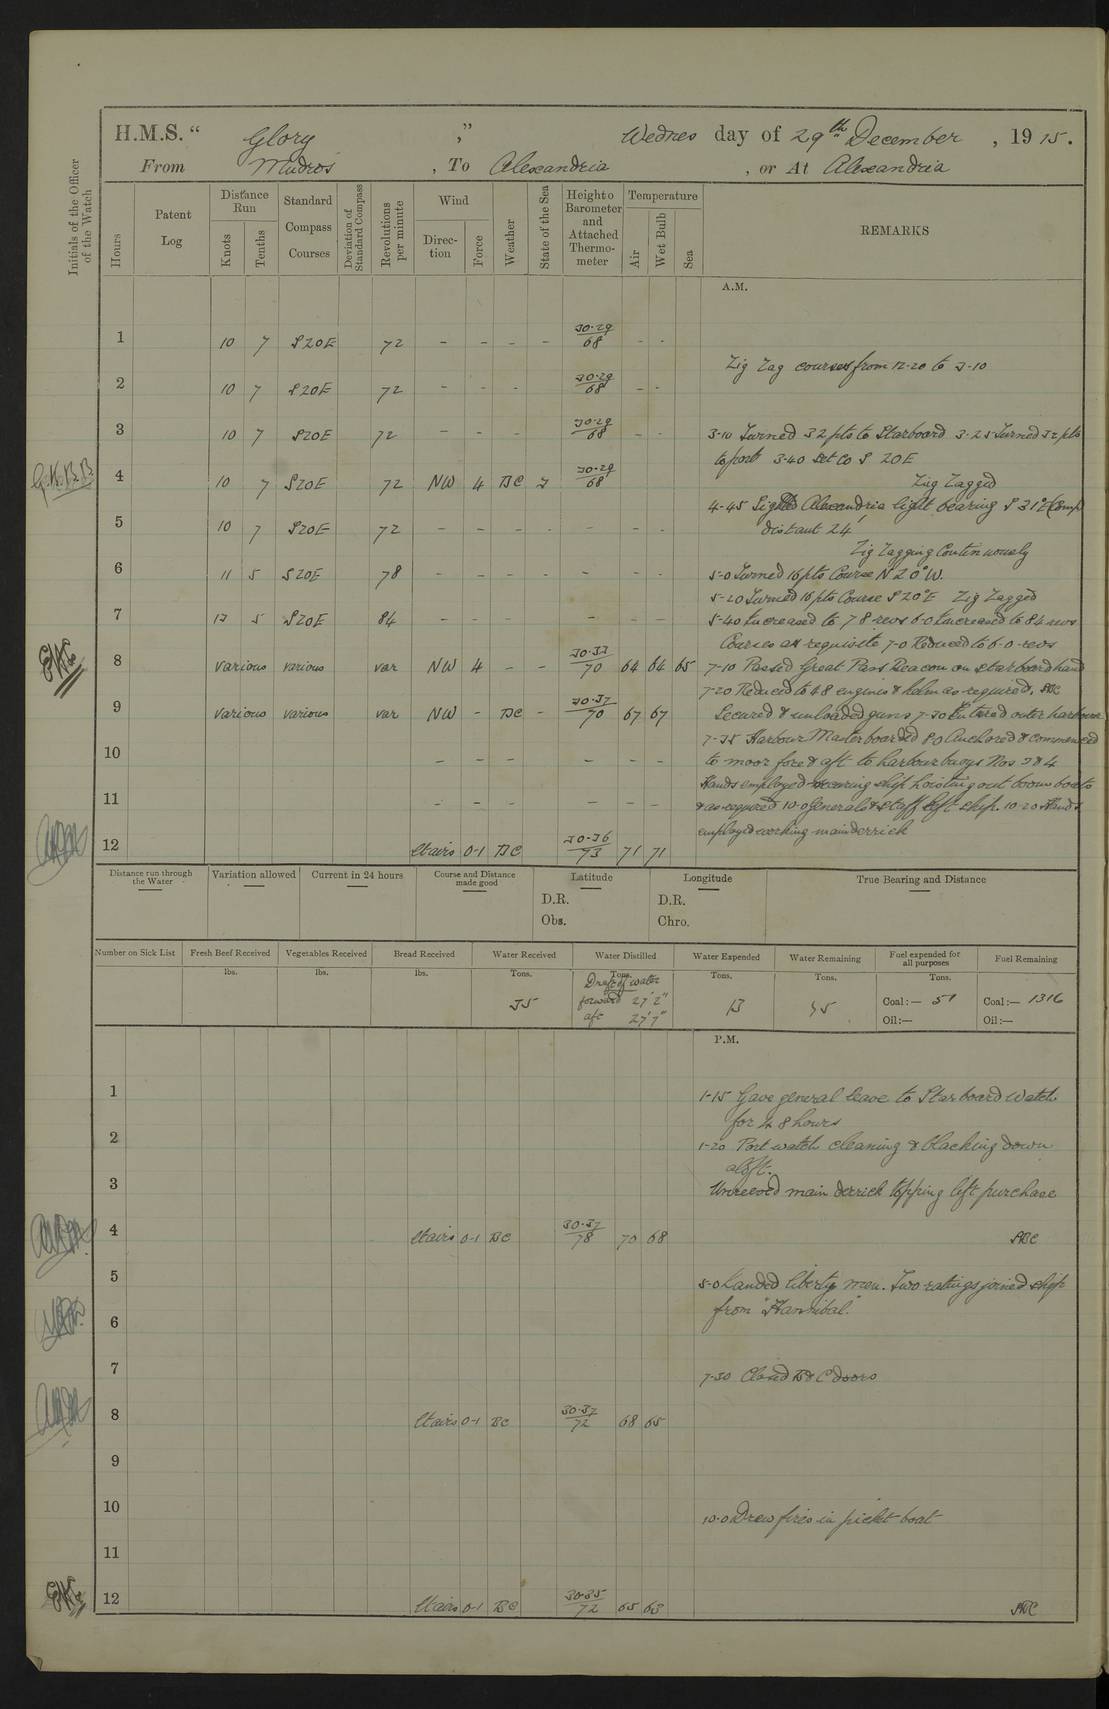 H.M.S. “ Glory ,” Wednes day of 29th December , 19 15.
From Mudros , To Alexandria , or At Alexandria
Initials of the Officer of the Watch
Hours Patent Log Distance Run Knots Tenths Standard Compass Courses Deviation of Standard Compass Revolutions per minute Wind Direction Force Weather State of the Sea Height o Barometer and Attached Thermometer Temperature Air Wet Bulb Sea REMARKS
A.M.
1 10 7 S20E 72 - - - - 30.29/68 - -
Zig Zag courses from 12-20 to 3-10
2 10 7 S20E 72 - - - 30.29/68 - -
3 10 7 S20E 72 - - - 30.29/68 - -
3-10 Turned 32 pts to Starboard 3-25 Turned 32 pts
to port 3-40 Set Co S 20E
4 10 7 S20E 72 NW 4 BC 3 30.29/68
Zig Zagged
4-45 Sighted Alexandria light bearing S 31°E (Comp)
distant 24'
5 10 7 S20E 72 - - - - - - -
Zig Zagging Continuously
6 11 5 S20E 78 - - - - - - -
5-0 Turned 16 pts Course N 20°W.
5-20 Turned 16 pts Course S 20°E Zig Zagged
7 13 5 S20E 84 - - - - - -
5-40 Increased to 78 revs 6-0 Increased to 84 revs
Courses as requisite 7-0 Reduced to 60 revs
8 various various var NW 4 - - 30.33/70 64 64 65
7-10 Passed Great Pass Beacon on starboard hand
7-20 Reduced to 48 engines & helm as required.
9 various various var NW - BC - 30.37/70 67 67
Secured & unloaded guns 7-30 Entered outer harbour
7-35 Harbour Master boarded 8-0 Anchored & commenced
10 - - - - - -
to moor fore & aft to harbour buoys Nos 3 & 4
Hands employed securing ship hoisting out boom boats
11 - - - - - -
& as required 10-0 Generals & staff left ship. 10-20 Hands
employed working main derrick
12 Stairs 0-1 BC 30.36/73 71 71
Distance run through the Water Variation allowed Current in 24 hours Course and Distance made good Latitude Longitude True Bearing and Distance
D.R. D.R.
Obs. Chro.
Number on Sick List Fresh Beef Received Vegetables Received Bread Received Water Received Water Distilled Water Expended Water Remaining Fuel expended for all purposes Fuel Remaining
lbs. lbs. lbs. Tons. Tons. Tons. Tons. Tons.
Draft of water
35 forward 27' 2" 13 Coal:— 51 Coal:— 1316
aft 27' 7" Oil:— Oil:—
P.M.
1
1-15 Gave general leave to Starboard Watch
for 48 hours
2
1-20 Port watch cleaning & blacking down
aloft.
3
Unreeved main derrick topping lift purchase
4 Stairs 0-1 BC 30.37/78 70 68
5
5-0 Landed liberty men. Two ratings joined ship
from "Hannibal."
6
7
7-30 Closed B & C doors
8 Stairs 0-1 BC 30.37/72 68 65
9
10
10-0 Drew fires in picket boat
11
12 Stairs 0-1 BC 30.35/72 65 63